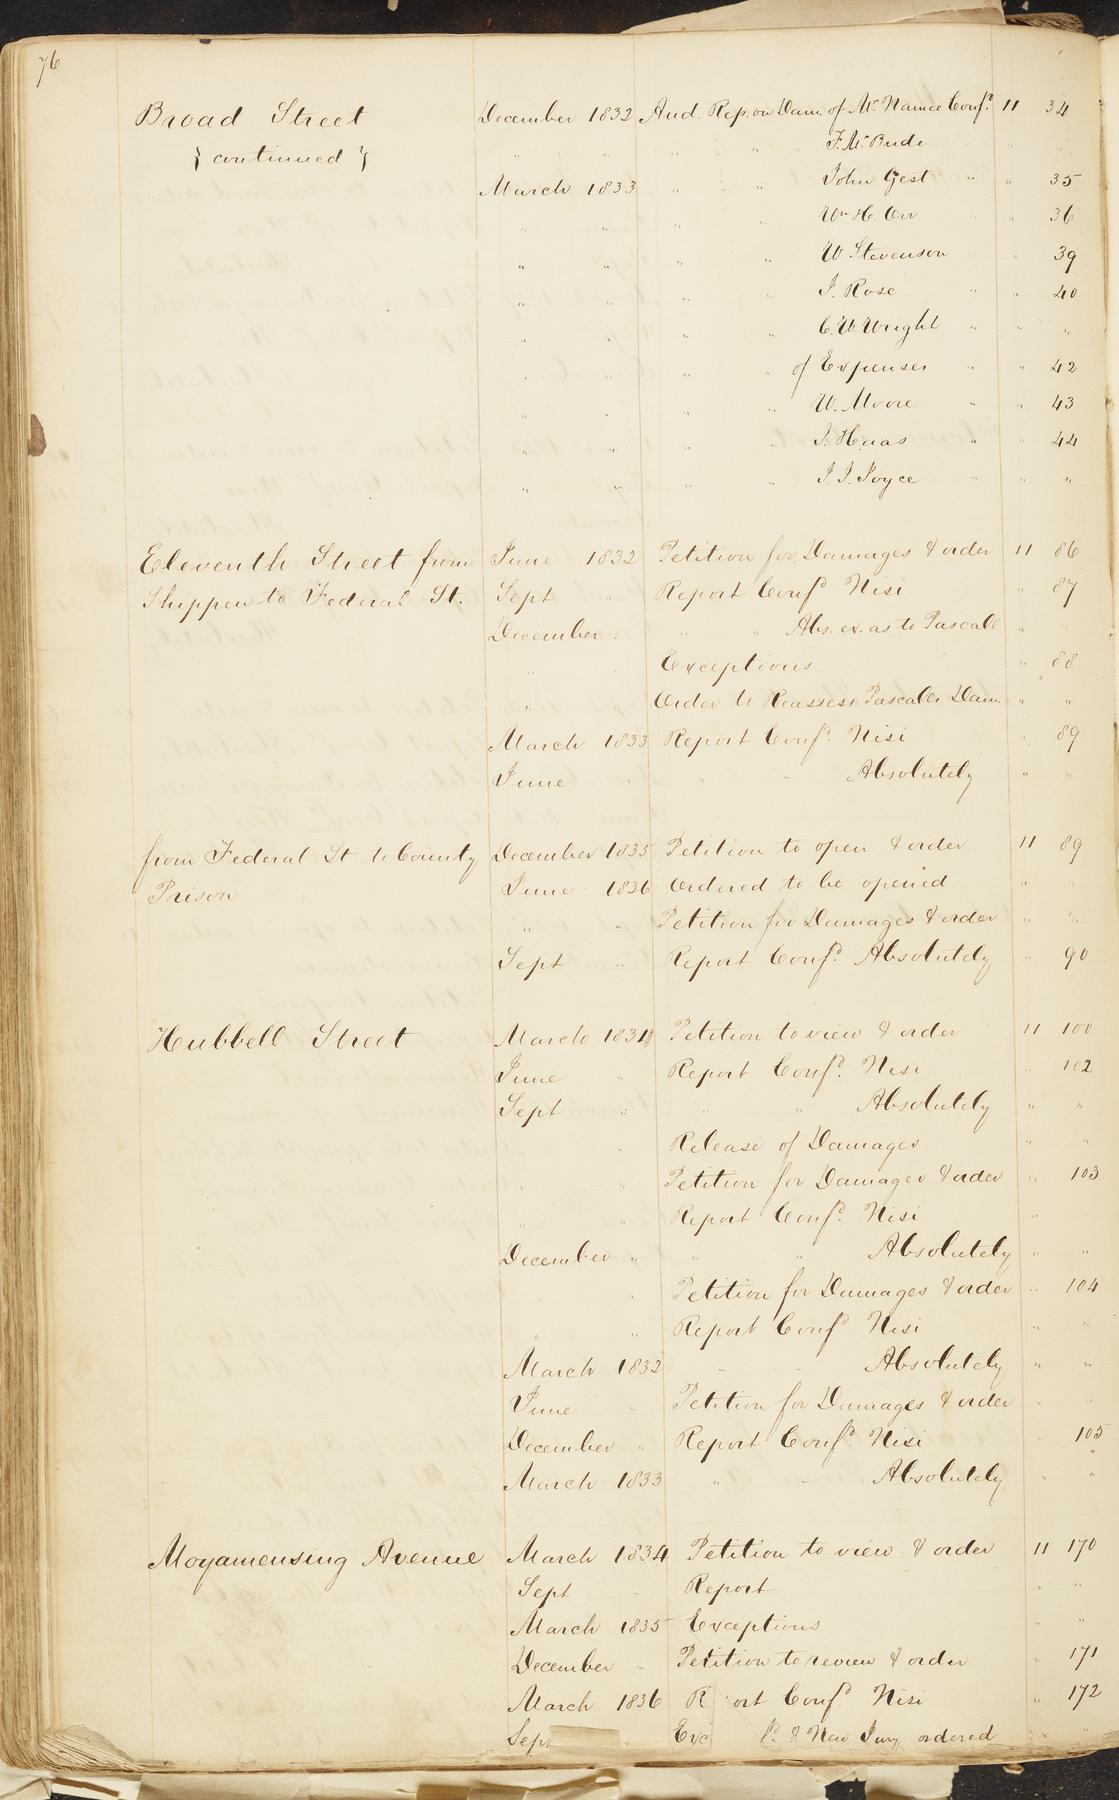 76
Broad Street December 1832 Aud. Rep. on Dam. of McNamee Conf.d 11 34
{ continued } " " " " F. McBride " " "
March 1833 " " John Gest " " 35
" " " " Wm H. Orr " " 36
" " " " W. Stevenson " " 39
" " " " J. Rose " " 40
" " " " C. W. Wright " " "
" " " " of Expenses " " 42
" " " " W. Moore " " 43
" " " " J. Haas " " 44
" " " " J. J. Joyce " " "
Eleventh Street from June 1832 Petition for Damages & order 11 86
Shippen to Federal St. Sept " Report Conf.d Nisi " 87
December " " " Abs. ex. as to Pascall " "
" " Exceptions " 88
" " Order to Reassess Pascalls Dam. " "
March 1833 Report Conf.d Nisi " 89
June " " " Absolutely " "
from Federal St to County December 1835 Petition to open & order 11 89
Prison June 1836 Ordered to be opened " "
" " Petition for Damages & order " "
Sept " Report Conf.d Absolutely " 90
Hubbell Street March 1831 Petition to view & order 11 100
June " Report Conf.d Nisi " 102
Sept " " " Absolutely " "
" " Release of Damages " "
" " Petition for Damages & order " 103
" " Report Conf.d Nisi " "
December " " " Absolutely " "
" " Petition for Damages & order " 104
" " Report Conf.d Nisi " "
March 1832 " " Absolutely " "
June " Petition for Damages & order " "
December " Report Conf.d Nisi " 105
March 1833 " " Absolutely " "
Moyamensing Avenue March 1834 Petition to view & order 11 170
Sept " Report " "
March 1835 Exceptions " "
December " Petition to review & order " 171
March 1836 R ort Conf.d Nisi " 172
Sept " Exc & New Jury ordered " "